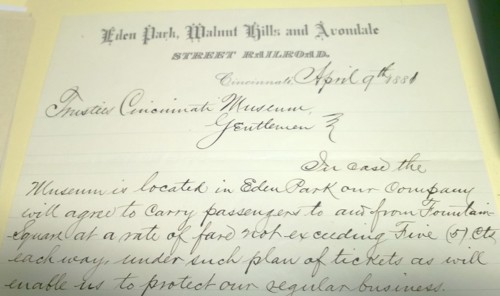 Eden Park, Walnut Hills and Avondale
STREET RAILROAD.
Cincinnati, April 9th 1881
Trustees Cincinnati Museum,
Gentlemen
In case the
Museum is located in Eden Park our Company
will agree to carry passengers to and from Fountain
Square at a rate of fare not exceeding Five (5) Cts
each way, under such plan of tickets as will
enable us to protect our regular business.